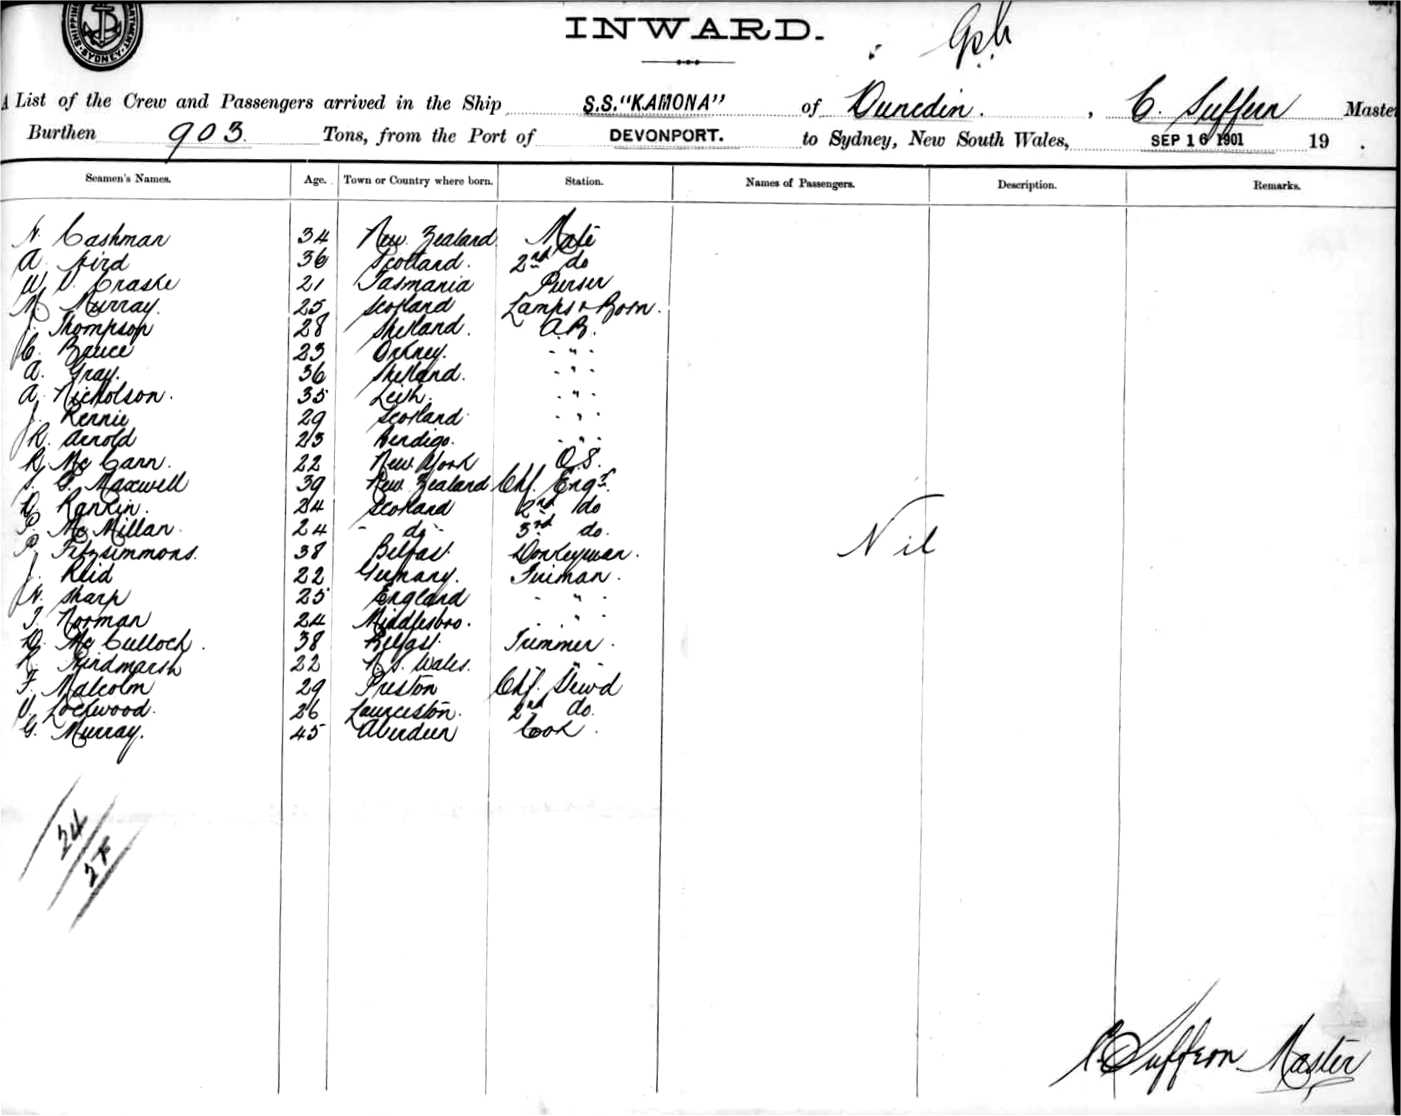 SYDNEY
INWARD.
A List of the Crew and Passengers arrived in the Ship S.S."KAMONA" of Dunedin. , C. Suffern Master
Burthen 903. Tons, from the Port of DEVONPORT. to Sydney, New South Wales, SEP 16 1901 19 .
Seamen's Names. Age. Town or Country where born. Station. Names of Passengers. Description. Remarks.
N. Cashman 34 New Zealand Mate
A. 36 Scotland. 2nd do
W. V. Craske 21 Tasmania Purser
M. Murray. 25 Scotland Lamps & Bosn.
J. Thompson 28 Shetland. A.B.
C. Bruce 23 Orkney. - " -
A. Gray. 36 Shetland. - " -
A. Nicholson. 35 Leith. - " -
J. Rennie 29 Scotland - " -
R. Arnold 23 Bendigo. - " -
R. Mc Cann. 22 New York O.S.
G. Maxwell 39 New Zealand Chf. Engr.
Rankin. 24 Scotland 2nd do
P. Mc Millan. 24 - do - 3rd do.
P. Fitzsimmons. 38 Belfast. Donkeyman.
J. Reid 22 Germany. Fireman.
N. Sharp 25 England - " -
T. Norman 24 Middlesbro. - " -
D. Mc Culloch. 38 Belfast. Trimmer.
R. Hindmarsh 22 N. S. Wales. - " -
F. Malcolm 29 Preston Chf. Stewd
V. Lockwood. 26 Launceston. 2nd do.
G. Murray. 45 Aberdeen Cook.
Nil
24
C Suffern Master